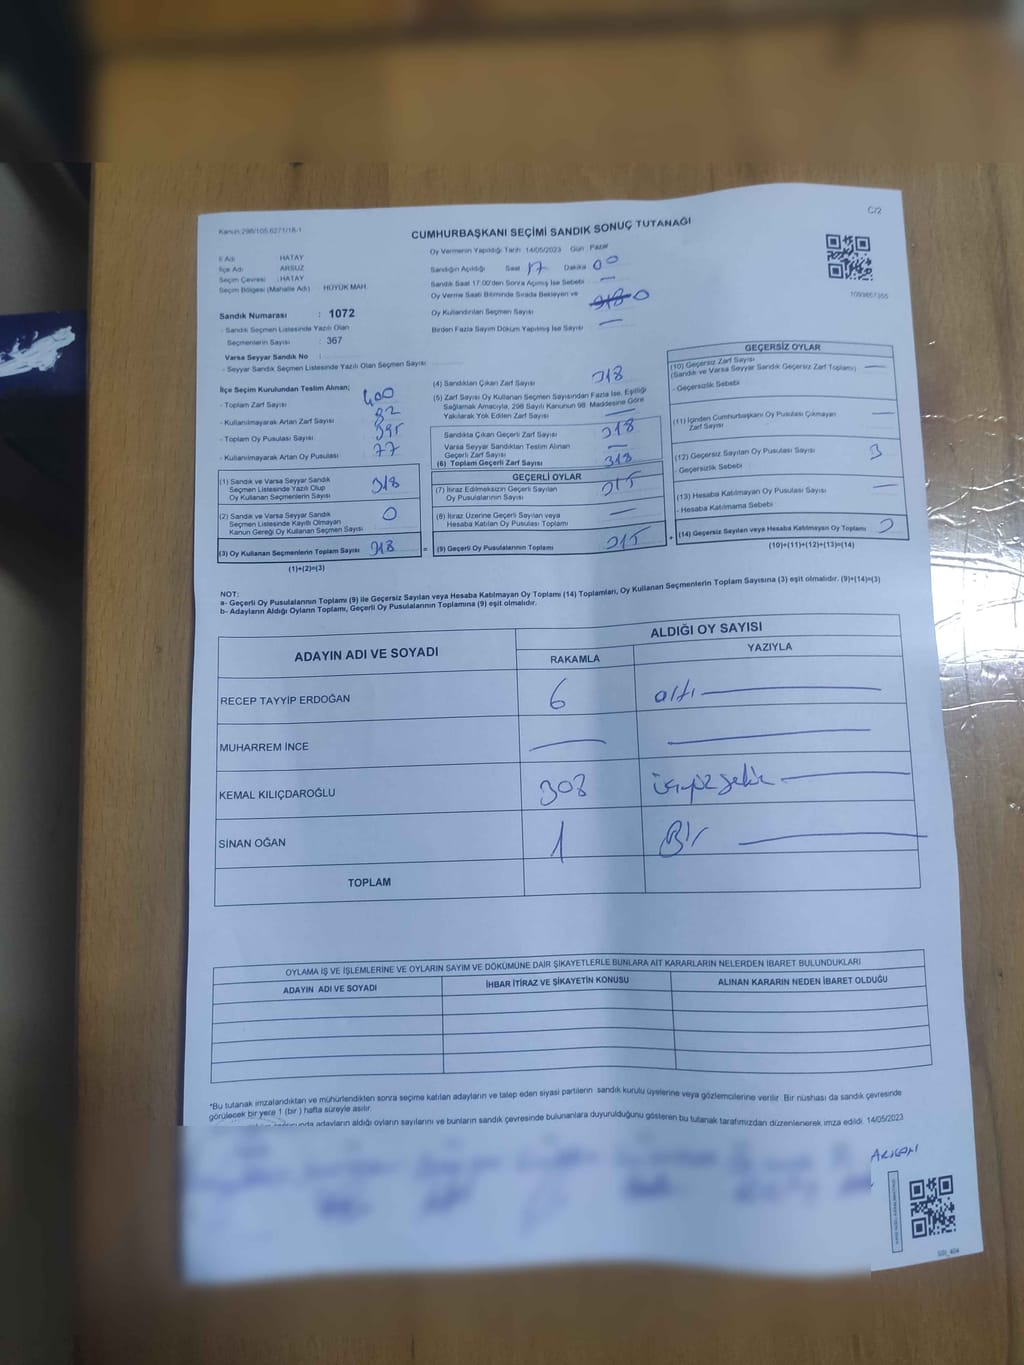 C/2
Kanun:298/105,6271/18-1
CUMHURBAŞKANI SEÇİMİ SANDIK SONUÇ TUTANAĞI
İl Adı HATAY
İlçe Adı ARSUZ
Seçim Çevresi : HATAY
Seçim Bölgesi (Mahalle Adı) HÜYÜK MAH.
Oy Vermenin Yapıldığı Tarih 14/05/2023 Gün : Pazar
Sandığın Açıldığı Saat 17 Dakika 00
Sandık Saat 17:00'den Sonra Açılmış İse Sebebi —
Oy Verme Saati Bitiminde Sırada Bekleyen ve
Oy Kullandırılan Seçmen Sayısı 0
Birden Fazla Sayım Döküm Yapılmış İse Sayısı —
1093657355
Sandık Numarası : 1072
- Sandık Seçmen Listesinde Yazılı Olan
Seçmenlerin Sayısı : 367
Varsa Seyyar Sandık No :
- Seyyar Sandık Seçmen Listesinde Yazılı Olan Seçmen Sayısı
İlçe Seçim Kurulundan Teslim Alınan;
- Toplam Zarf Sayısı 400
- Kullanılmayarak Artan Zarf Sayısı 82
- Toplam Oy Pusulası Sayısı 395
- Kullanılmayarak Artan Oy Pusulası 77
(1) Sandık ve Varsa Seyyar Sandık
Seçmen Listesinde Yazılı Olup
Oy Kullanan Seçmenlerin Sayısı 318
(2) Sandık ve Varsa Seyyar Sandık
Seçmen Listesinde Kayıtlı Olmayan
Kanun Gereği Oy Kullanan Seçmen Sayısı 0
(3) Oy Kullanan Seçmenlerin Toplam Sayısı 318
(1)+(2)=(3)
(4) Sandıktan Çıkan Zarf Sayısı 318
(5) Zarf Sayısı Oy Kullanan Seçmen Sayısından Fazla İse, Eşitliği
Sağlamak Amacıyla, 298 Sayılı Kanunun 98. Maddesine Göre
Yakılarak Yok Edilen Zarf Sayısı —
Sandıkta Çıkan Geçerli Zarf Sayısı 318
Varsa Seyyar Sandıktan Teslim Alınan
Geçerli Zarf Sayısı —
(6) Toplam Geçerli Zarf Sayısı 318
GEÇERLİ OYLAR
(7) İtiraz Edilmeksizin Geçerli Sayılan
Oy Pusulalarının Sayısı 315
(8) İtiraz Üzerine Geçerli Sayılan veya
Hesaba Katılan Oy Pusulası Toplamı —
= (9) Geçerli Oy Pusulalarının Toplamı 315
GEÇERSİZ OYLAR
(10) Geçersiz Zarf Sayısı
(Sandık ve Varsa Seyyar Sandık Geçersiz Zarf Toplamı) —
- Geçersizlik Sebebi
(11) İçinden Cumhurbaşkanı Oy Pusulası Çıkmayan
Zarf Sayısı —
(12) Geçersiz Sayılan Oy Pusulası Sayısı 3
- Geçersizlik Sebebi
(13) Hesaba Katılmayan Oy Pusulası Sayısı —
- Hesaba Katılmama Sebebi
+ (14) Geçersiz Sayılan veya Hesaba Katılmayan Oy Toplamı 3
(10)+(11)+(12)+(13)=(14)
NOT:
a- Geçerli Oy Pusulalarının Toplamı (9) ile Geçersiz Sayılan veya Hesaba Katılmayan Oy Toplamı (14) Toplamları, Oy Kullanan Seçmenlerin Toplam Sayısına (3) eşit olmalıdır. (9)+(14)=(3)
b- Adayların Aldığı Oyların Toplamı, Geçerli Oy Pusulalarının Toplamına (9) eşit olmalıdır.
ADAYIN ADI VE SOYADI ALDIĞI OY SAYISI
RAKAMLA YAZIYLA
RECEP TAYYİP ERDOĞAN 6 altı —
MUHARREM İNCE — —
KEMAL KILIÇDAROĞLU 308 üçyüzsekiz —
SİNAN OĞAN 1 Bir —
TOPLAM
OYLAMA İŞ VE İŞLEMLERİNE VE OYLARIN SAYIM VE DÖKÜMÜNE DAİR ŞİKAYETLERLE BUNLARA AİT KARARLARIN NELERDEN İBARET BULUNDUKLARI
ADAYIN ADI VE SOYADI İHBAR İTİRAZ VE ŞİKAYETİN KONUSU ALINAN KARARIN NEDEN İBARET OLDUĞU
*Bu tutanak imzalandıktan ve mühürlendikten sonra seçime katılan adayların ve talep eden siyasi partilerin sandık kurulu üyelerine veya gözlemcilerine verilir. Bir nüshası da sandık çevresinde
görülecek bir yere 1 (bir) hafta süreyle asılır.
adayların aldığı oyların sayılarını ve bunların sandık çevresinde bulunanlara duyurulduğunu gösteren bu tutanak tarafımızdan düzenlenerek imza edildi. 14/05/2023